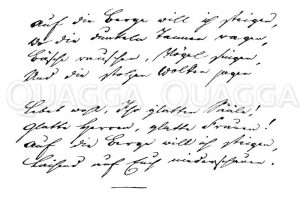 Auf die Berge will ich steigen,
Wo die dunkeln Tannen ragen,
Bäche rauschen, Vögel singen,
Und die stolzen Wolken jagen
Lebet wohl, Ihr glatten Säle!
Glatte Herren, glatte Frauen!
Auf die Berge will ich steigen,
Lachend auf Euch niederschauen.
QUAGGA QUAGGA